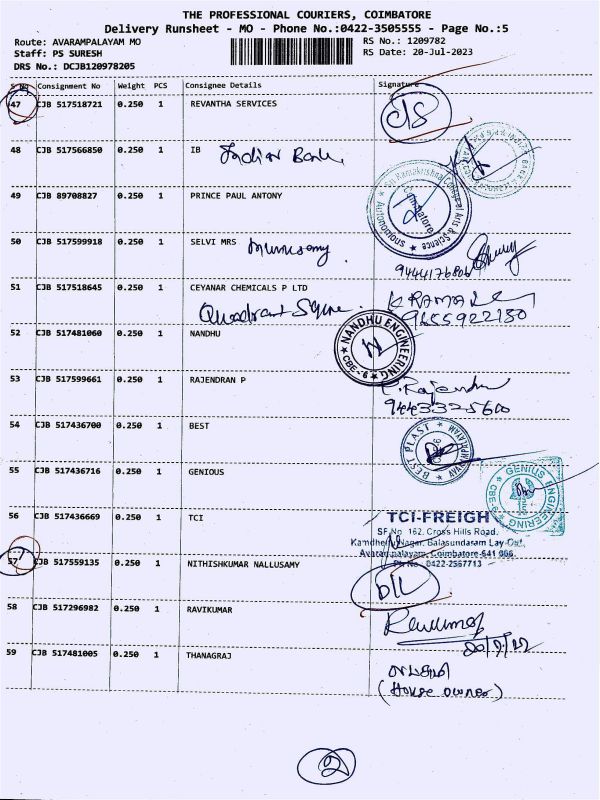 THE PROFESSIONAL COURIERS, COIMBATORE
Delivery Runsheet - MO - Phone No.:0422-3505555 - Page No.:5
Route: AVARAMPALAYAM MO
RS No.: 1209782
Staff: PS SURESH
RS Date: 20-Jul-2023
DRS No.: DCJB120978205
S No Consignment No Weight PCS Consignee Details Signature
47 CJB 517518721 0.250 1 REVANTHA SERVICES
48 CJB 517566850 0.250 1 IB Indian Bank
49 CJB 89708827 0.250 1 PRINCE PAUL ANTONY
Sri Ramakrishna College of Arts & Science
Coimbatore
Autonomous
50 CJB 517599918 0.250 1 SELVI MRS
9444176806
51 CJB 517518645 0.250 1 CEYANAR CHEMICALS P LTD
Quadrant
9655922180
52 CJB 517481060 0.250 1 NANDHU
NANDHU ENGINEERING
CBE-6
53 CJB 517599661 0.250 1 RAJENDRAN P
9443325600
54 CJB 517436700 0.250 1 BEST
BEST PLAST
55 CJB 517436716 0.250 1 GENIOUS
GENIUS ENGINEERING
56 CJB 517436669 0.250 1 TCI
TCI-FREIGH
SF No 162, Cross Hills Road,
Nagar, Balasundaram Lay-Out,
Avarampalayam, Coimbatore-641 006.
Ph No 0422-2567713
57 CJB 517559135 0.250 1 NITHISHKUMAR NALLUSAMY
D/L
58 CJB 517296982 0.250 1 RAVIKUMAR
59 CJB 517481005 0.250 1 THANAGRAJ
(House owner)
2